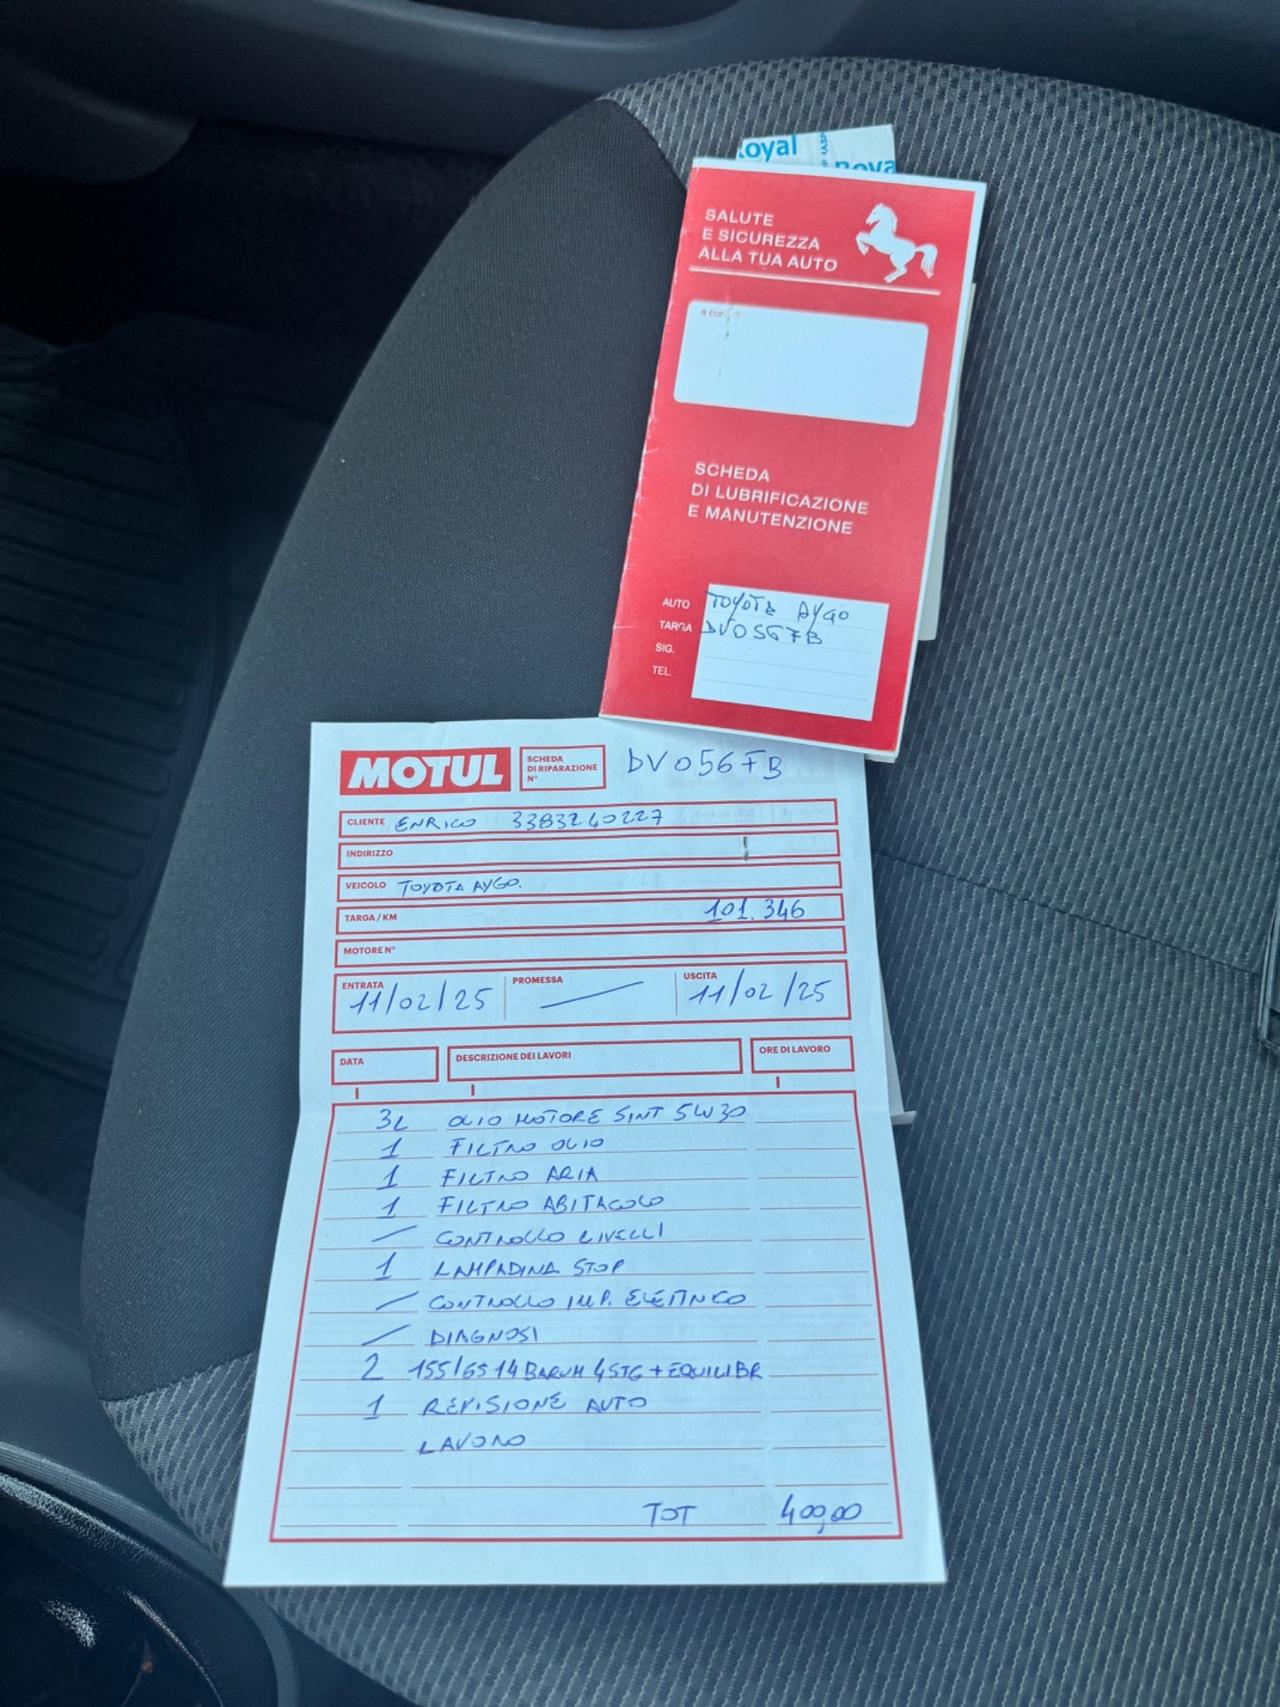 oyal
nova
SALUTE
E SICUREZZA
ALLA TUA AUTO
a cura di
SCHEDA
DI LUBRIFICAZIONE
E MANUTENZIONE
AUTO TOYOTA AYGO
TARGA DV056FB
SIG.
TEL.
MOTUL SCHEDA DI RIPARAZIONE N° DV056FB
CLIENTE ENRICO 3383240227
INDIRIZZO
VEICOLO TOYOTA AYGO.
TARGA / KM 101.346
MOTORE N°
ENTRATA PROMESSA USCITA
11/02/25 — 11/02/25
DATA DESCRIZIONE DEI LAVORI ORE DI LAVORO
3L OLIO MOTORE SINT 5W30
1 FILTRO OLIO
1 FILTRO ARIA
1 FILTRO ABITACOLO
— CONTROLLO LIVELLI
1 LAMPADINA STOP
— CONTROLLO IMP. ELETTRICO
— DIAGNOSI
2 155/65 14 BARUM 4STG + EQUILIBR
1 REVISIONE AUTO
LAVORO
TOT 400,00